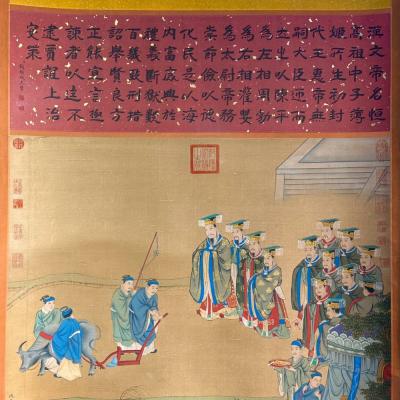 漢文帝名恒
高祖中子薄
姬所生初封
代王惠帝無
嗣大臣迎而
立之以陳平
為左相周勃
為右相灌嬰
為太尉帝務
崇節儉以德
化民是以海
內富庶興於
禮義斷獄數
百幾致刑措
詔舉賢良方
正能直言極
諫者以達不
逮賈誼上治
安策